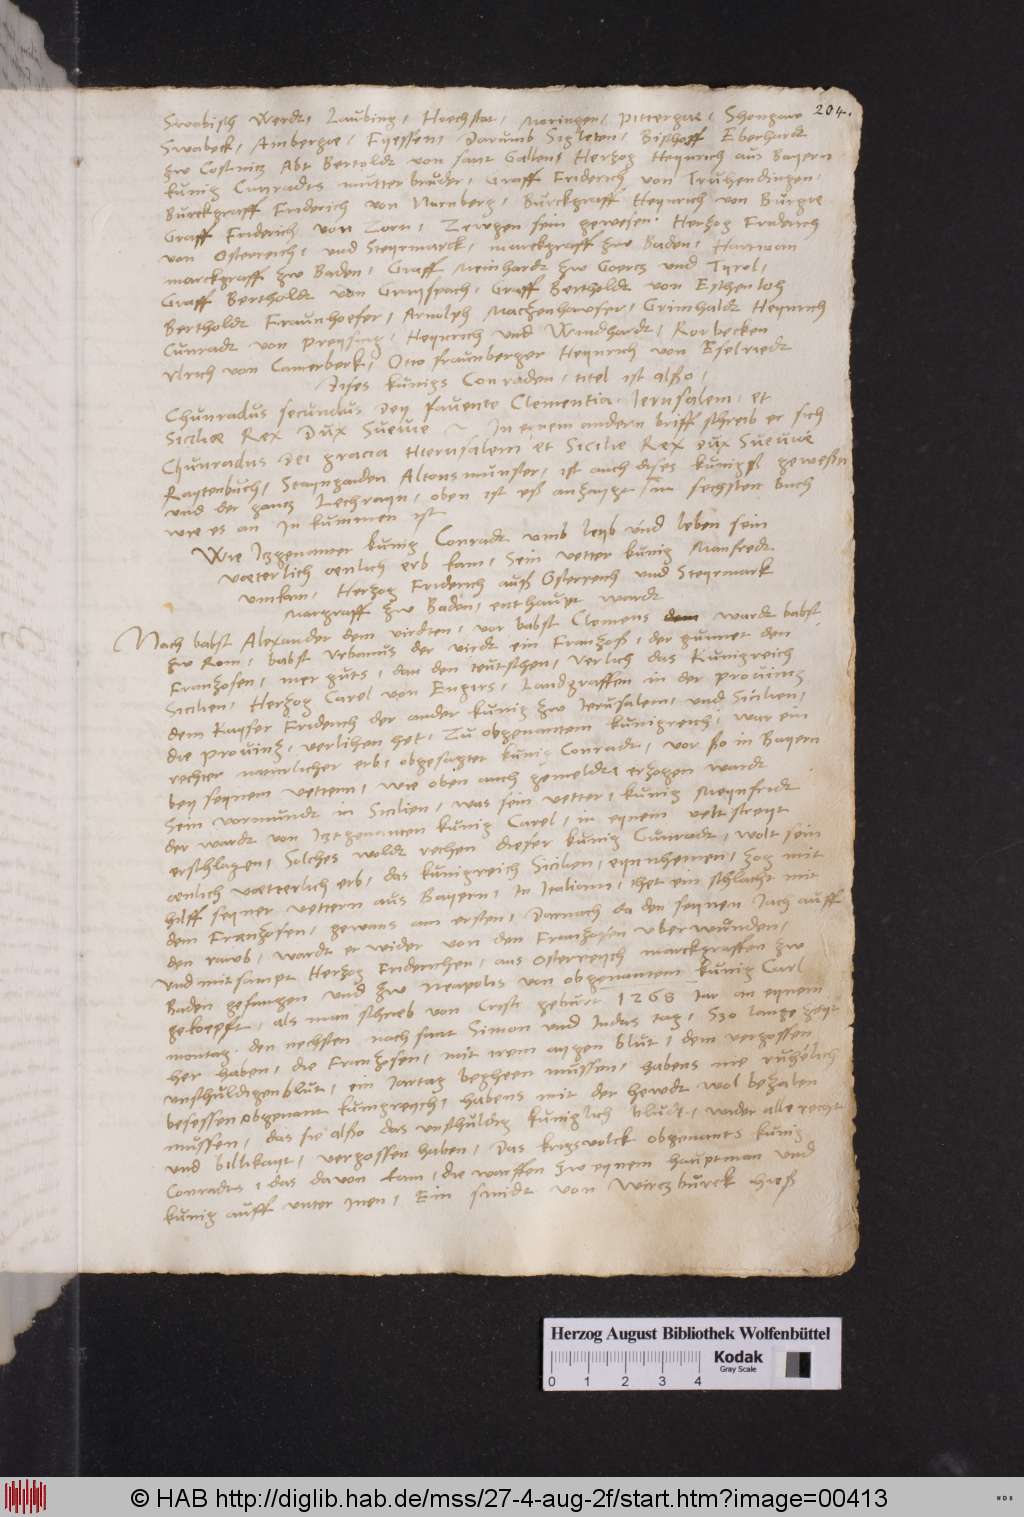 204.
Swobisch Werdt, Laubing, Hoechstat, Moringen, Pittergaw, Shongaw
Swabeck, Ambergaw, Fyessen, Darumb Sigleten, Bischoff Eberhardt
zw Costnicz Abt Bertoldt von sant Gallen, Herzog Heynrich aus Bayern
kunig Cunradts mutter bruder, Graff Friderich von Truhendingen,
Burckgraff Friderich von Nurnberg, Burckgraff Heynrich von Burgaw
Graff Friderich von Zorn, Zewgen sein gewesen, Herzog Friderich
von Osterreich, und Steyrmarck, marckgraff zw Baden, Harman
marckgraff zw Baden, Graff Meinhardt zw Goercz und Tyrol,
Graff Bertholdt von Grayspach, Graff Bertholdt von Eschenloh
Bertholdt Fraunhoefer, Arnolph Machzenhawser, Grimhaldt Heynrich
Cunradt von Preysing, Heynrich und Windhardt, Rorbecken
Ulrich von Camerberk, Otto fraunberger Heynrich von Eselriedt
Dises kunigs Conraden, titel ist also,
Chunradus secundus Dey favente Clementia, Jerusalem, et
Sicilie Rex Dux Suevie ~ In eynem andern briff schreib er sich
Chunradus dei gracia Hierusalem et Sicilie Rex dux Suevie
Raytenbuch, Stayngaden Altonsmunster, ist auch dises kunigs gewesen
und der gantz Lechrayn, oben ist es anzaygt im sechsten buch
wie es an In kummen ist
Wie Itzgenanter kunig Conradt umb leyb und leben sein
vaeterlich aenlich erb kam, Sein vetter kunig Manfredt
umkam, Herzog Friderich auss Osterreich und Steyrmark
Margraff zw Baden, enthaupt wardt
Nach babst Alexander dem vierdten, vor babst Clemens wardt babst
zw Rom, babst Urbanus der vierdt ein Franzoss, der gunnet den
Franzosen, mer guts, dan den teutschen, Verlich das Kunigreich
Sicilien, Herzog Carel von Engirs, Landgraffen in der provintz
dem Kayser Friderich der ander kunig zw Jerusalem, und Sicilien,
die provintz, verlihen het, Zu obgenantem kunigreich, war ein
rechter naturlicher erb, obgesagter kunig Conradt, vor so in Bayern
bey seynem vettern, wie oben auch gemeldt, erzogen wardt
Sein vormundt in Sicilien, was sein vetter, kunig Meynfridt
der wardt von Itztgenanten kunig Carel, in eynem veltstreyt
erschlagen, Solches woldt rechen dieser kunig Cunradt, wolt sein
aenlich vaetterlich erb, das kunigreich Sicilien, eynnhemen, zog mit
hilff seyner vettern aus Bayern, In Italiam, thet ein schlacht mit
dem Franzosen, gewans am ersten, Darnach da den seynen Jach auff
den rawb, wardt er wider von den Franzosen uberwunden,
und mit sampt Herzog Friderichen, aus Osterreych marckgraffen zw
Baden gefangen und zw Neapolis von obgenantem kunig Carl
gekoepfft, als man schrieb von Cristi geburt 1268 Jar an eynem
montag, den nechsten nach sant Simon und Judas tag, Szo lange zeyt
her haben, die Franzosen, mit irem aygen blut, dem vergossen
unschuldigen blut, ein Jartag begheen mussen, habens nie ruhelich
besessen obgenant kunigreych, habens mit der hewdt wol bezalen
mussen, das sie also das unschuldig kuniglich bludt, wider alle recht
und billikayt, vergossen haben, Das krigsvolck obgenants kunig
Conradts, das davon kam, die warffen zw eynem hauptman und
kunig auff unter inen, Ein smidt von Wirczburck hies
Herzog August Bibliothek Wolfenbüttel
Kodak
Gray Scale
0 1 2 3 4
© HAB http://diglib.hab.de/mss/27-4-aug-2f/start.htm?image=00413